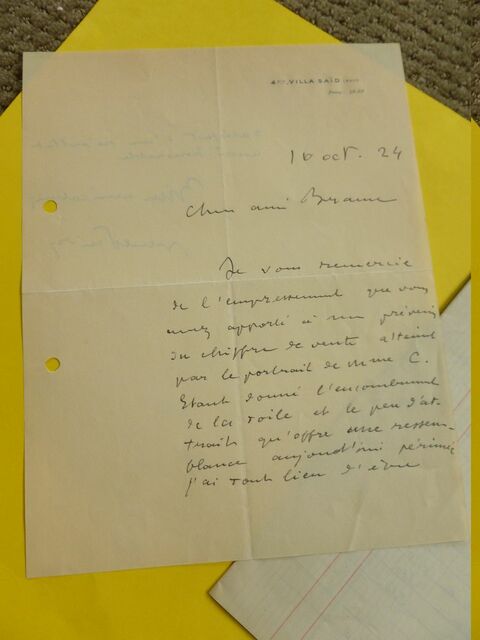 VILLA SAÏD
16 oct. 24
Cher ami
Je vous remercie
de l'empressement que vous
avez apporté à me prévenir
du chiffre de vente atteint
par le portrait de Mme C.
Etant donné l'encombrement
de la toile et le peu d'at-
traits qu'offre une ressem-
blance aujourd'hui périmée
j'ai tout lieu d'être